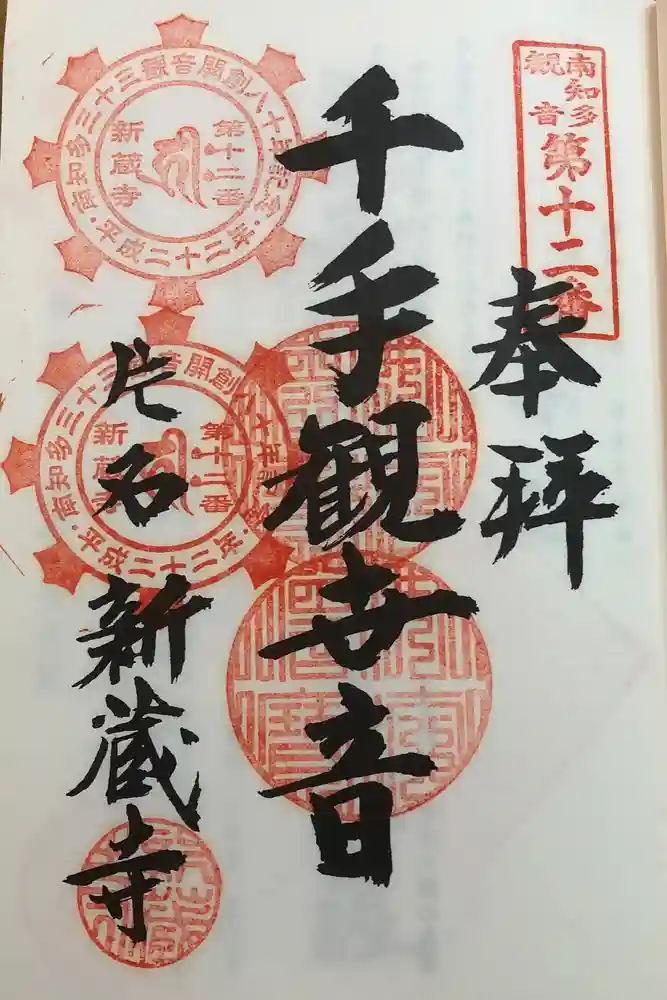 南知多
観音
第十二番
奉拝
千手観世音
片名
新蔵寺
南知多三十三観音開創八十年記念・平成二十二年
第十二番
新蔵寺
南知多三十三観音開創八十年記念・平成二十二年
第十二番
新蔵寺